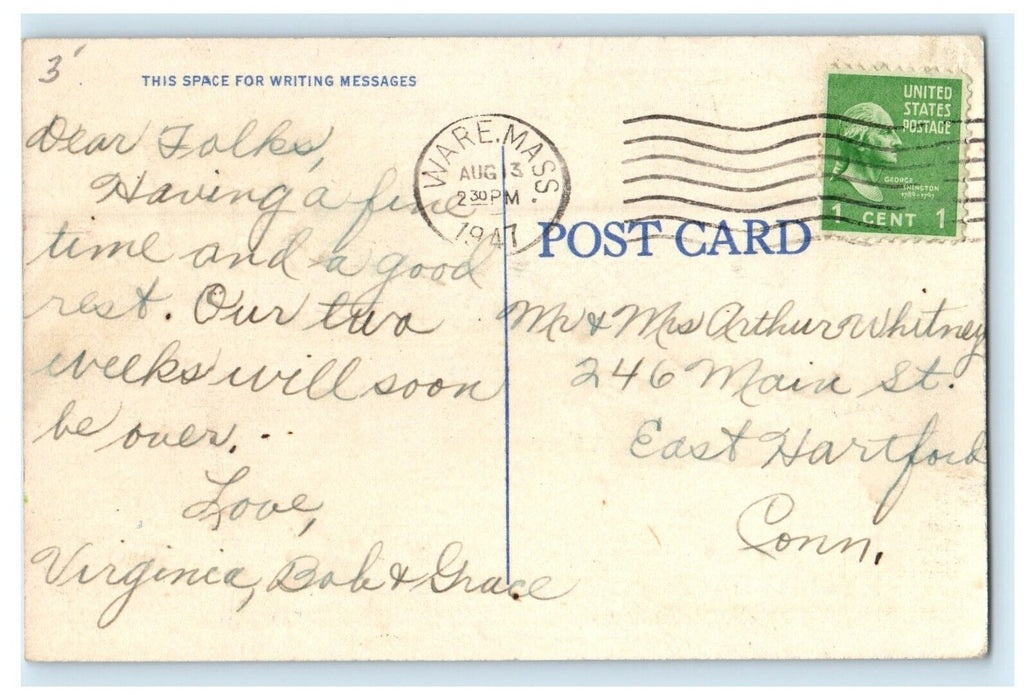 3
THIS SPACE FOR WRITING MESSAGES
Dear Folks,
Having a fine
time and a good
rest. Our two
weeks will soon
be over.
Love,
Virginia, Bob & Grace
WARE. MASS.
AUG 13
2 30 PM
1947
UNITED
STATES
POSTAGE
GEORGE
WASHINGTON
1789-1797
1 CENT 1
POST CARD
Mr & Mrs Arthur Whitney
246 Main St.
East Hartford
Conn.